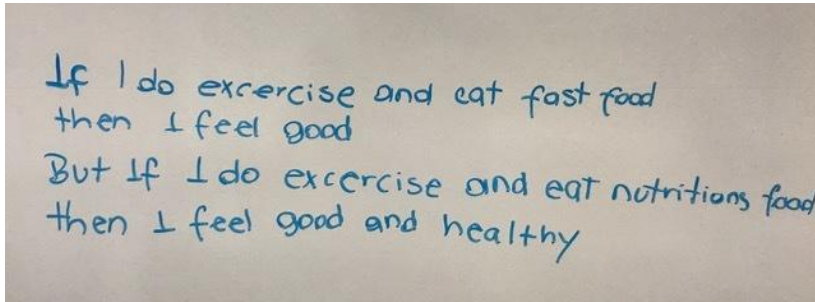 If I do excercise and eat fast food
then I feel good
But If I do excercise and eat nutritions food
then I feel good and healthy